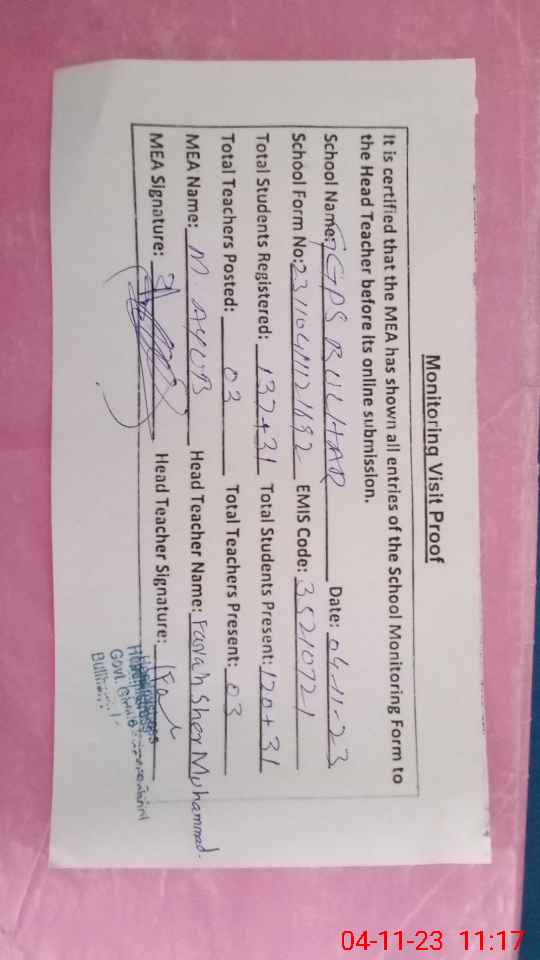 Monitoring Visit Proof
It is certified that the MEA has shown all entries of the School Monitoring Form to
the Head Teacher before its online submission.
School Name: GGPS BULHAR Date: 04-11-23
School Form No: EMIS Code: 35210721
Total Students Registered: 132+31 Total Students Present: 120+31
Total Teachers Posted: 03 Total Teachers Present: 03
MEA Name: M. AYUB Head Teacher Name: Farah Sher Muhammad.
MEA Signature: Head Teacher Signature:
Govt.
04-11-23 11:17